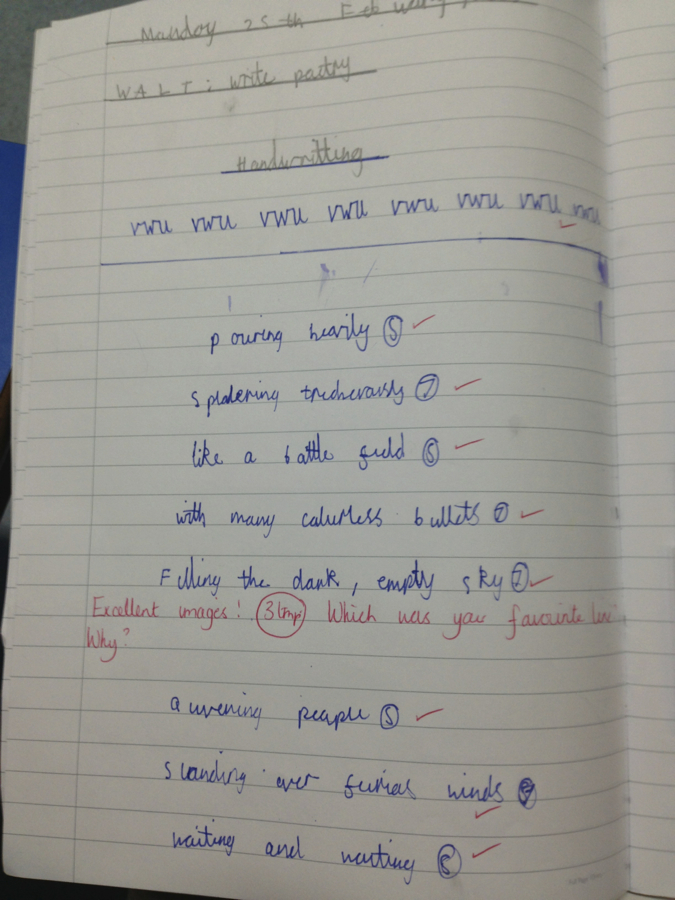 Monday 25th February
WALT: write poetry
Handwritting
vwu vwu vwu vwu vwu vwu vwu vwu
pouring heavily 5
spladering trecherously 7
like a battle field 5
with many calurless bullets 7
Filling the dark, empty sky 7
Excellent images! Which was your favourite line?
Why?
people 5
standing over furias winds
waiting and waiting 5